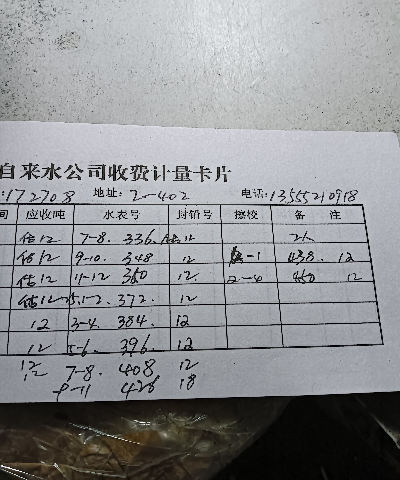 自来水公司收费计量卡片
:172708 地址: 2-402 电话: 13555210918
间 应收吨 水表号 封铅号 擦校 备 注
估12 7-8. 336. 12 2人
估12 9-10. 348 12 -1 438. 12
估12 11-12 360 12. 2-4 450 12
估12 25.1-2. 372. 12
12 3-4. 384. 12
12 5-6. 396 12
12 7-8. 408 12
12 9-11 426 18